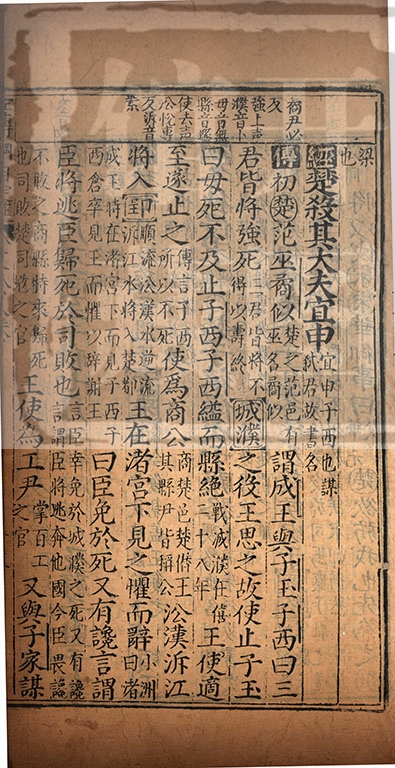 梁也
經楚殺其大夫宜申宜申子西也謀弑君故書名
矞尹必反
傳初楚范巫矞似楚之范邑有巫名矞似謂成王與子玉子西曰三
強上声
濮音卜
君皆將強死三君皆將不得以壽終城濮之役王思之故使止子玉
毋音無
縣音懸
曰毋死不及止子西子西縊而縣絕戰城濮在僖二十八年王使適
使去声
㳂悅專
至遂止之傳言子西所以不死使為商公商楚邑楚僭王其縣尹皆稱公㳂漢泝江
反泝音素
將入郢順流㳂漢水逆流泝江水將入楚都王在渚宮下見之懼而辭小洲曰渚
成王時在渚宮下而見子西子西倉卒見王而懼以辭謝王曰臣免於死又有讒言謂
臣將逃臣歸死於司敗也言臣幸免於城濮之死又有讒言謂臣將逃奔他國今臣畏讒
不敢之商縣特來歸死也司敗楚司寇之官王使為工尹掌百工之官又與子家謀